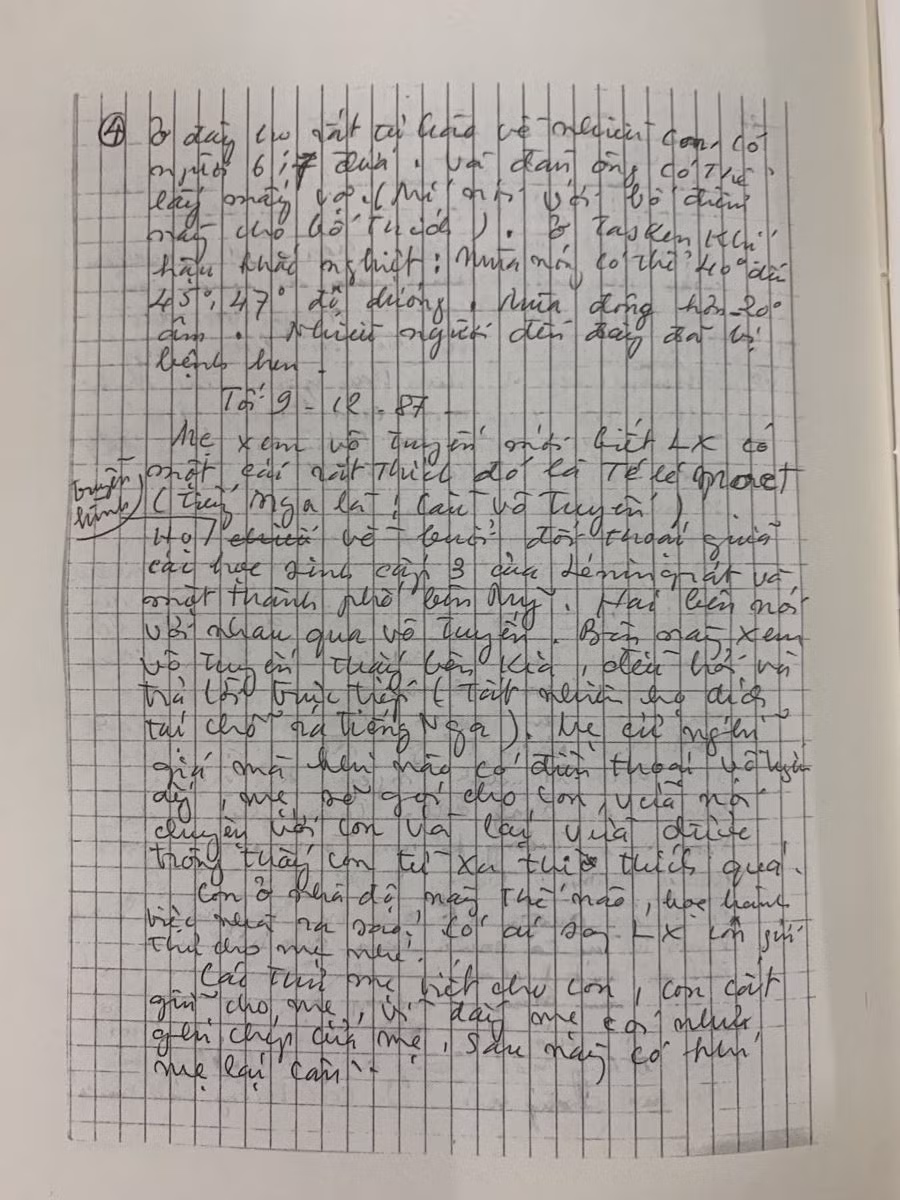 ④ Ở đây họ rất tự hào về nhiều con, có
người 6, 7 đứa. Và đàn ông có thể
lấy mấy vợ. (Mẹ nói với bố điều
này cho bố thích). Ở Tasken khí
hậu khắc nghiệt: Mùa nóng có thể 40° đến
45°, 47° độ dương. Mùa đông hơn -20°
âm. Nhiều người đến đây đã bị
bệnh hen.
Tối 9-12-87
Mẹ xem vô tuyến mới biết LX có
một cái rất thích đó là Télé
(tiếng Nga là: Cầu vô tuyến)
truyền hình
Họ về buổi đối thoại giữa
các học sinh cấp 3 của Lêningrát và
một thành phố bên Mỹ. Hai bên nói
với nhau qua vô tuyến. Bên này xem
vô tuyến thấy bên kia, đều hỏi và
trả lời trực tiếp (tất nhiên họ dịch
tại chỗ ra tiếng Nga). Mẹ cứ nghĩ
giá mà hôm nào có điện thoại vô tuyến
đó, mẹ sẽ gọi cho con, vừa nói
chuyện với con và lại vừa được
trông thấy con từ xa thì thích quá.
Con ở nhà độ này thế nào, học hành
việc nhà ra sao? Có ai sang LX con gửi
thư cho mẹ nhé.
Các thư mẹ viết cho con, con cất
giữ cho mẹ, vì đây mẹ coi như
ghi chép của mẹ, sau này có thể
mẹ lại cần..